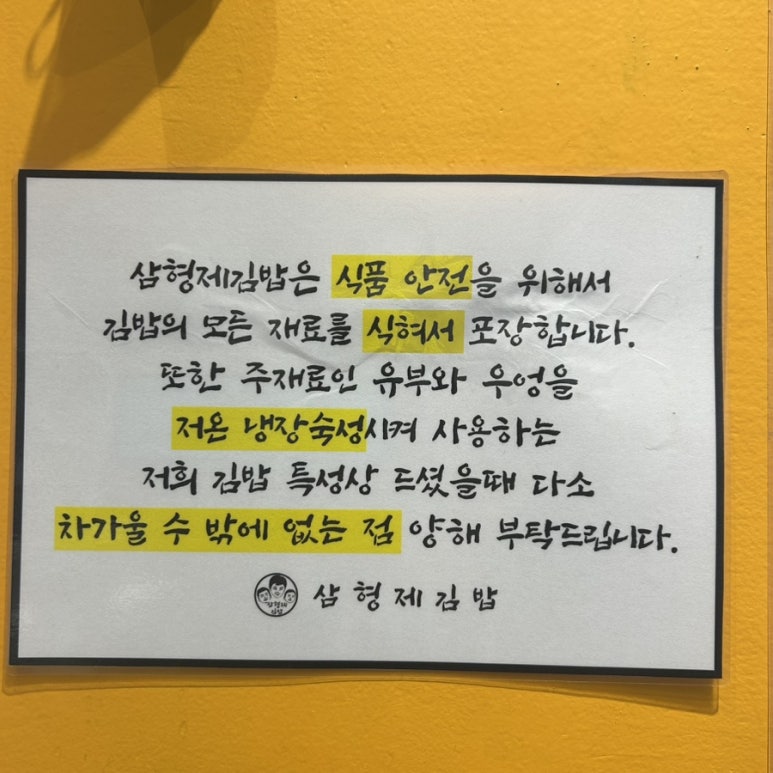 삼형제김밥은 식품 안전을 위해서
김밥의 모든 재료를 식혀서 포장합니다.
또한 주재료인 유부와 우엉을
저온 냉장숙성시켜 사용하는
저희 김밥 특성상 드셨을때 다소
차가울 수 밖에 없는 점 양해 부탁드립니다.
삼형제김밥
삼형제김밥